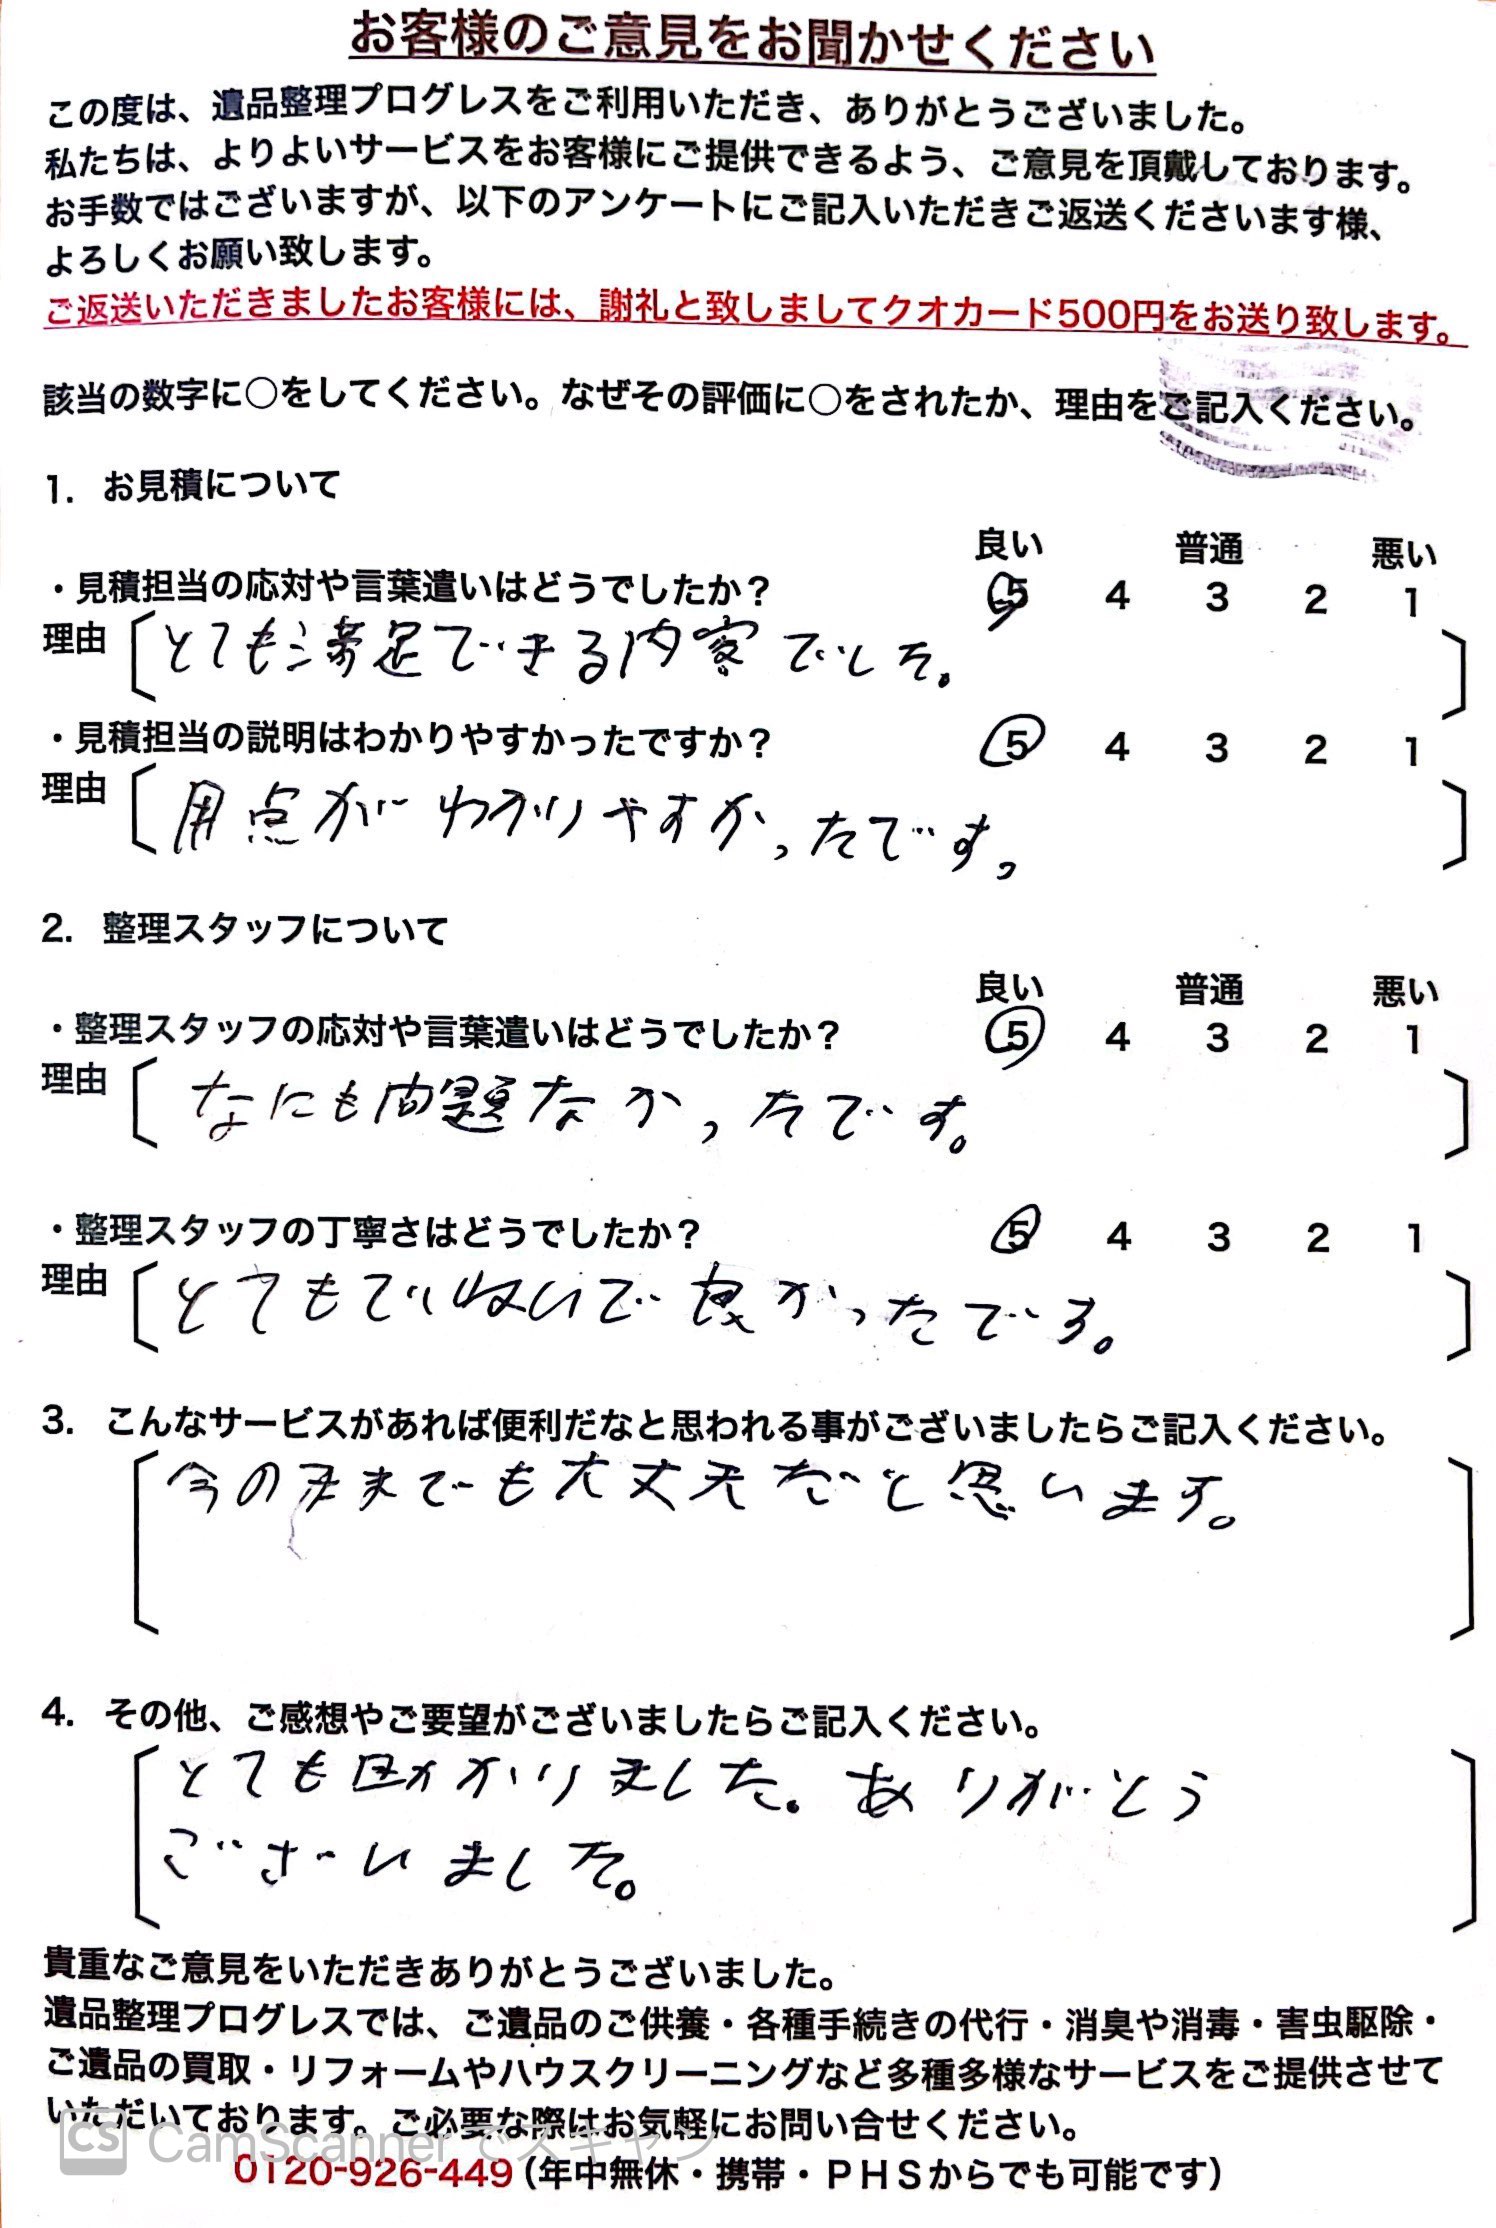 お客様のご意見をお聞かせください
この度は、遺品整理プログレスをご利用いただき、ありがとうございました。
私たちは、よりよいサービスをお客様にご提供できるよう、ご意見を頂戴しております。
お手数ではございますが、以下のアンケートにご記入いただきご返送くださいます様、
よろしくお願い致します。
ご返送いただきましたお客様には、謝礼と致しましてクオカード500円をお送り致します。
該当の数字に○をしてください。なぜその評価に○をされたか、理由をご記入ください。
1. お見積について
良い 普通 悪い
・見積担当の応対や言葉遣いはどうでしたか？ 5 4 3 2 1
理由 とても満足できる内容でした。
・見積担当の説明はわかりやすかったですか？ 5 4 3 2 1
理由 点がわかりやすかったです。
2. 整理スタッフについて
良い 普通 悪い
・整理スタッフの応対や言葉遣いはどうでしたか？ 5 4 3 2 1
理由 なにも問題なかったです。
・整理スタッフの丁寧さはどうでしたか？ 5 4 3 2 1
理由 とてもていねいで良かったです。
3. こんなサービスがあれば便利だなと思われる事がございましたらご記入ください。
今のままでも大丈夫だと思います。
4. その他、ご感想やご要望がございましたらご記入ください。
とても助かりました。ありがとう
ございました。
貴重なご意見をいただきありがとうございました。
遺品整理プログレスでは、ご遺品のご供養・各種手続きの代行・消臭や消毒・害虫駆除・
ご遺品の買取・リフォームやハウスクリーニングなど多種多様なサービスをご提供させて
いただいております。ご必要な際はお気軽にお問い合せください。
CS CamScannerでスキャン
0120-926-449（年中無休・携帯・ＰＨＳからでも可能です）